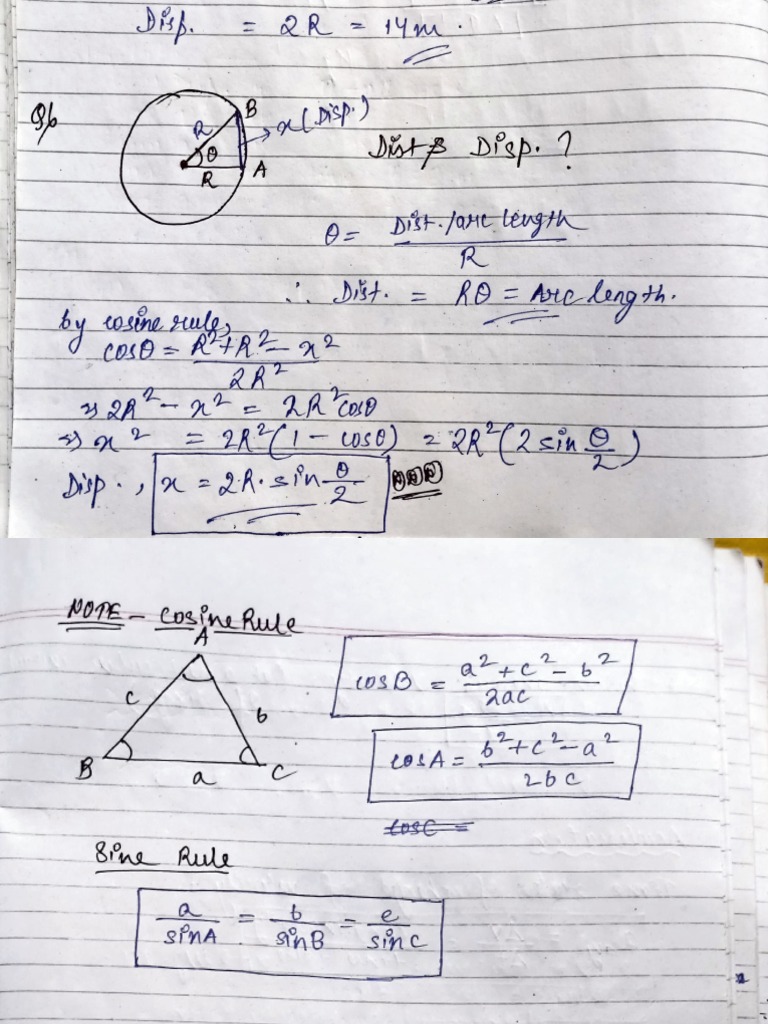 Disp. = 2R = 14m.
Q6
B
R
x (Disp.)
θ
R
A
Dist & Disp. ?
θ = Dist./arc length / R
∴ Dist. = Rθ = Arc length.
by cosine rule,
cosθ = R² + R² - x² / 2R²
⇒ 2R² - x² = 2R² cosθ
⇒ x² = 2R² (1 - cosθ) = 2R² (2 sin θ/2)
Disp., x = 2R. sin θ/2
NOTE - Cosine Rule
A
c
b
B
a
C
cosB = a² + c² - b² / 2ac
cosA = b² + c² - a² / 2bc
cosC =
Sine Rule
a / sinA = b / sinB = c / sinC